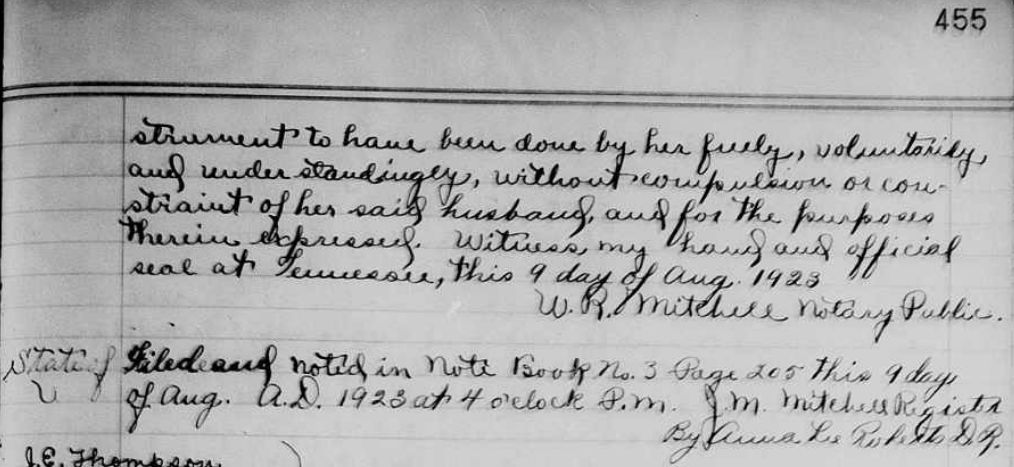 455
strument to have been done by her freely, voluntarily,
and understandingly, without compulsion or con-
straint of her said husband, and for the purposes
therein expressed. Witness, my hand and official
seal at Tennessee, this 9 day of Aug. 1923
W. R. Mitchell Notary Public.
State of Filed and noted in Note Book No. 3 Page 205 this 9 day
of Aug. A.D. 1923 at 4 oclock P.m. J.M. Mitchell Register
By Anna Lee Roberts D.R.
J.E. Thompson